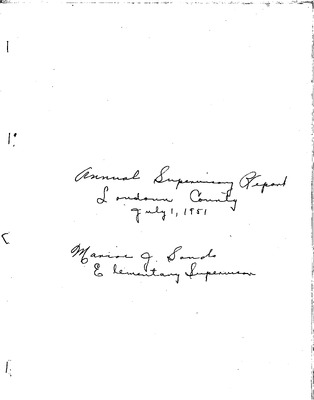 Annual Supervisory Report
Loudoun County
July 1, 1951
J. Sands
Elementary Supervisor